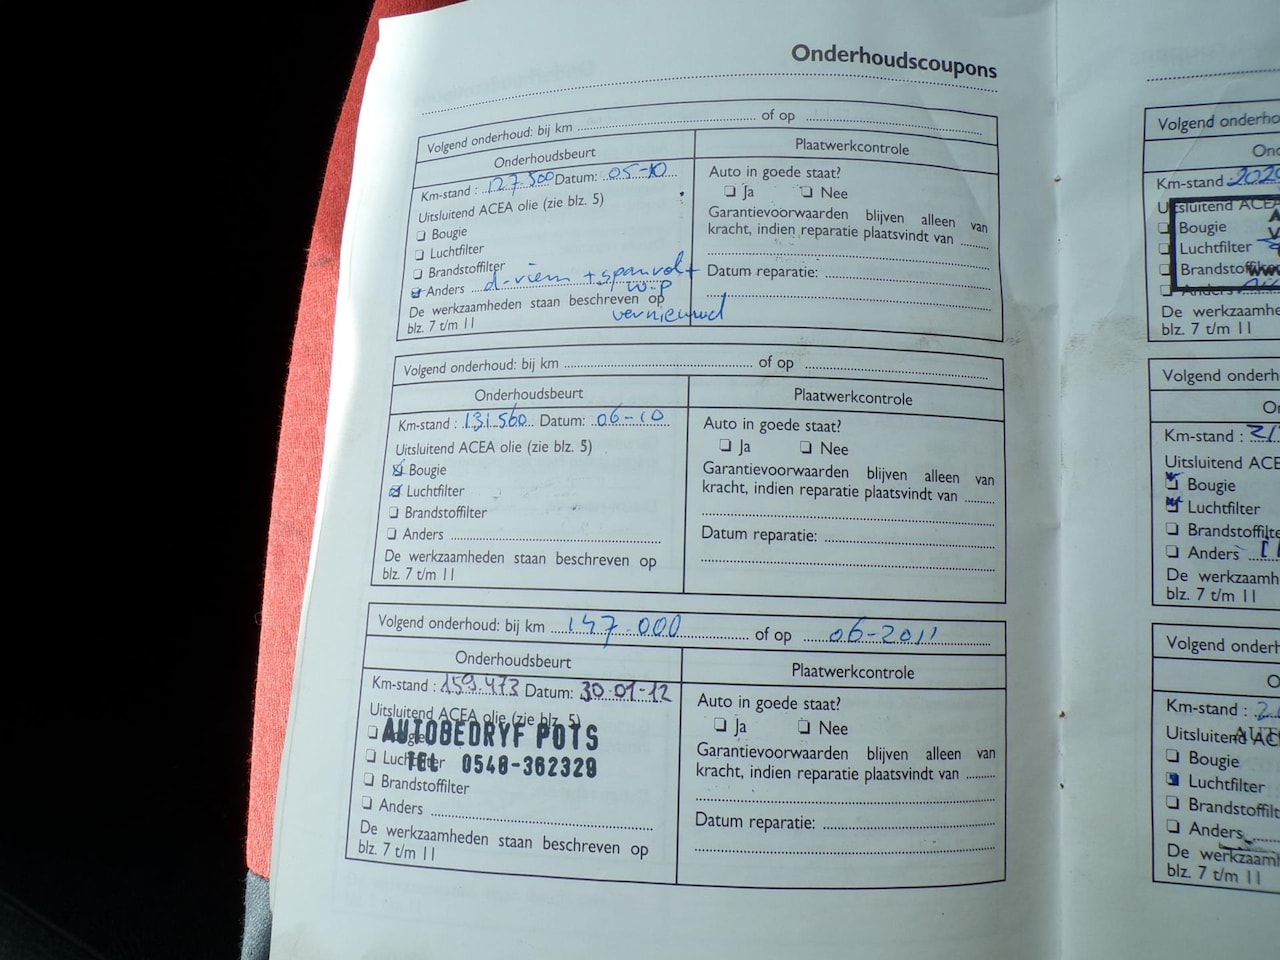 Onderhoudscoupons
Volgend onderhoud: bij km of op
Onderhoudsbeurt Plaatwerkcontrole
Km-stand : 127.500 Datum: 05-10
Uitsluitend ACEA olie (zie blz. 5)
Bougie
Luchtfilter
Brandstoffilter
Anders d-riem + spanrol +
w-p
vernieuwd
De werkzaamheden staan beschreven op
blz. 7 t/m 11
Auto in goede staat?
Ja Nee
Garantievoorwaarden blijven alleen van
kracht, indien reparatie plaatsvindt van
Datum reparatie:
Volgend onderhoud: bij km of op
Onderhoudsbeurt Plaatwerkcontrole
Km-stand : 131.560 Datum: 06-10
Uitsluitend ACEA olie (zie blz. 5)
Bougie
Luchtfilter
Brandstoffilter
Anders
De werkzaamheden staan beschreven op
blz. 7 t/m 11
Auto in goede staat?
Ja Nee
Garantievoorwaarden blijven alleen van
kracht, indien reparatie plaatsvindt van
Datum reparatie:
Volgend onderhoud: bij km 147.000 of op 06-2011
Onderhoudsbeurt Plaatwerkcontrole
Km-stand : 159.473 Datum: 30-01-12
Uitsluitend ACEA olie (zie blz. 5)
AUTOBEDRYF POTS
TEL 0548-362329
Bougie
Luchtfilter
Brandstoffilter
Anders
De werkzaamheden staan beschreven op
blz. 7 t/m 11
Auto in goede staat?
Ja Nee
Garantievoorwaarden blijven alleen van
kracht, indien reparatie plaatsvindt van
Datum reparatie:
Volgend onderho
Km-stand
Uitsluitend ACEA
Bougie
Luchtfilter
Anders
De werkzaamh
blz. 7 t/m 11
Volgend onderh
Km-stand :
Uitsluitend ACE
Bougie
Luchtfilter
Brandstoffilte
Anders
De werkzaamh
blz. 7 t/m 11
Volgend onderh
Km-stand :
Uitsluitend AC
Bougie
Luchtfilter
Brandstoffilt
Anders
De werkzaamh
blz. 7 t/m 11